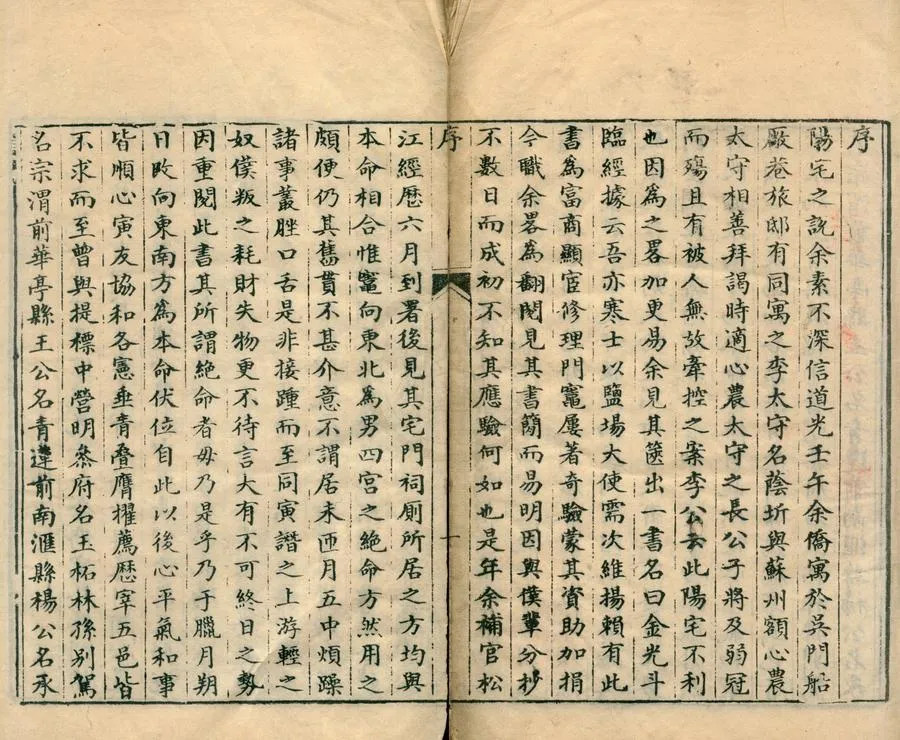 序
陽宅之說余素不深信道光壬午余僑寓於吳門船
廠巷旅邸有同寓之李太守名蔭圻與蘇州額心農
太守相善拜謁時適心農太守之長公子將及弱冠
而殤且有被人無故牽控之案李公云此陽宅不利
也因為之畧加更易余見其篋出一書名曰金光斗
臨經據云吾亦寒士以鹽場大使需次維揚賴有此
書為富商顯宦修理門竈屢著奇驗蒙其資助加捐
今職余畧為翻閱見其書簡而易明因與僕輩分抄
不數日而成初不知其應驗何如也是年余補官松
序
一
江經歷六月到署後見其宅門祠厠所居之方均與
本命相合惟竈向東北為男四宮之絕命方然用之
頗便仍其舊貫不甚介意不謂居未匝月五中煩躁
諸事叢脞口舌是非接踵而至同寅譖之上游輕之
奴僕叛之耗財失物更不待言大有不可終日之勢
因重閱此書其所謂絕命者毋乃是乎乃于臘月朔
日改向東南方為本命伏位自此以後心平氣和事
皆順心寅友協和各憲垂青疊膺擢薦歷宰五邑皆
不求而至曾與提標中營明叅府名玉柘林孫別駕
名宗渭前華亭縣王公名青蓮前南滙縣楊公名承